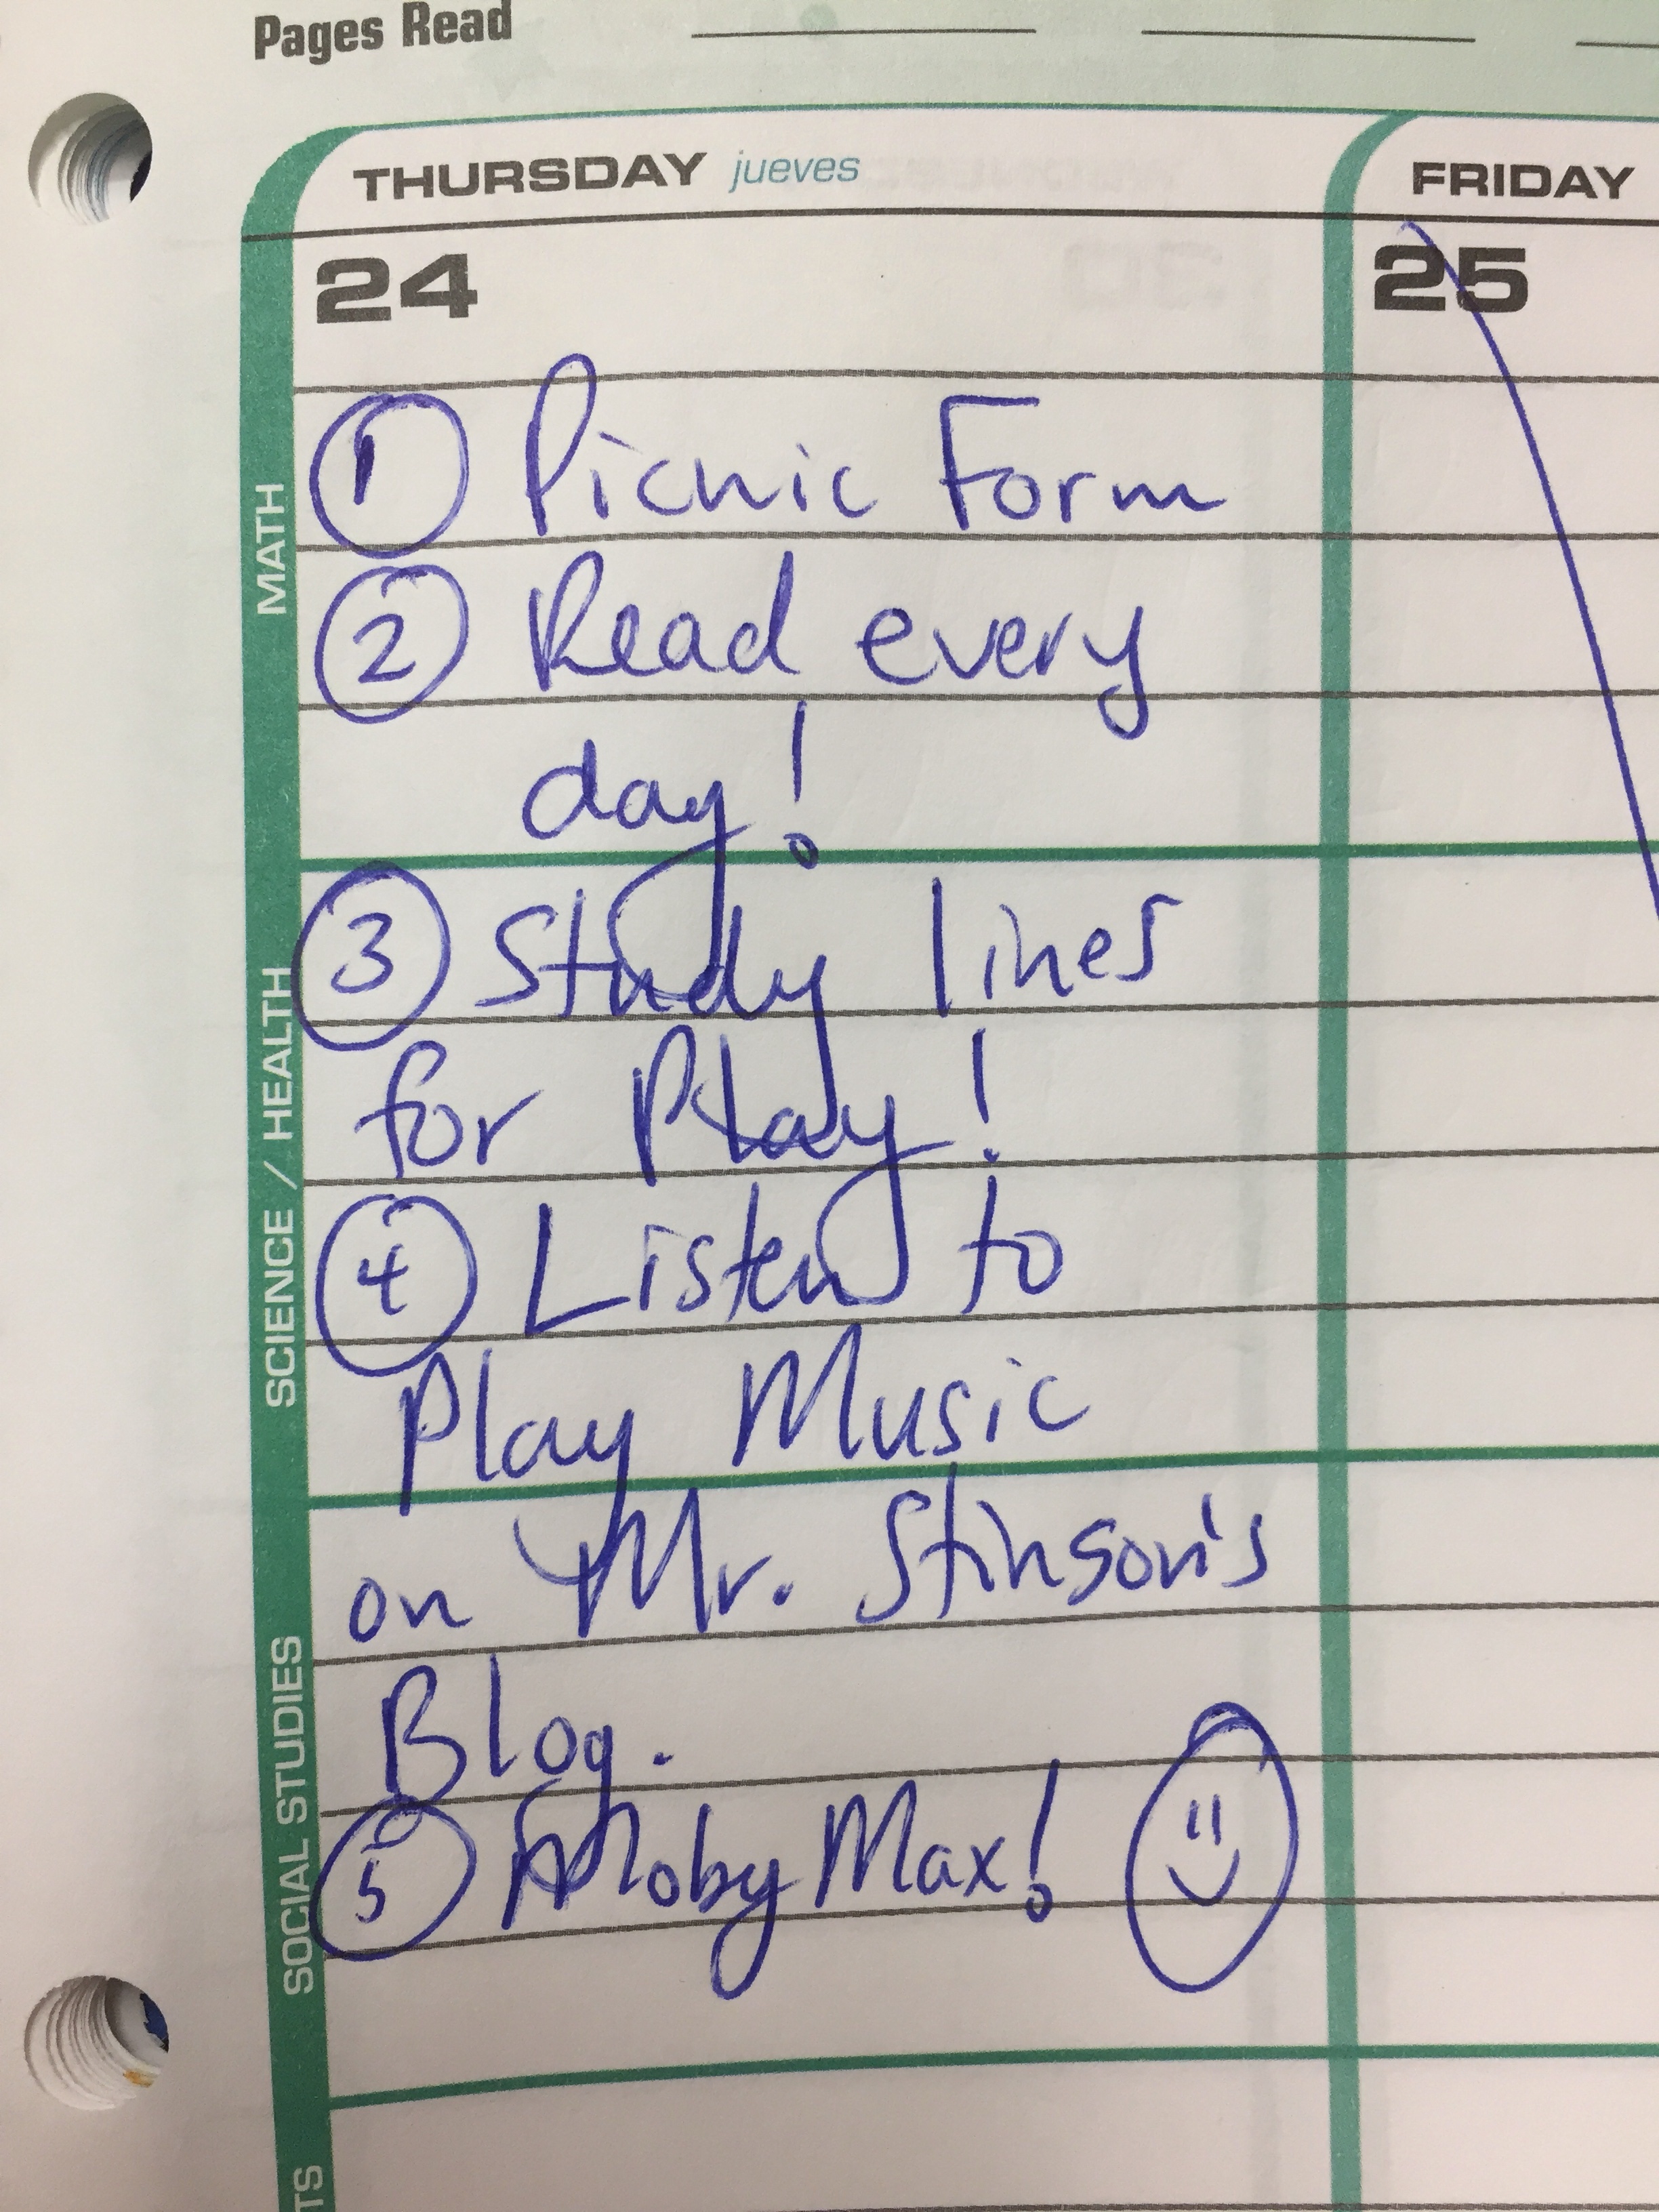 Pages Read
THURSDAY jueves
FRIDAY
24
25
MATH
① Picnic Form
② Read every
day!
SCIENCE / HEALTH
③ Study lines
for Play!
④ Listen to
Play Music
SOCIAL STUDIES
on Mr. Stinson's
Blog.
⑤ Moby Max!